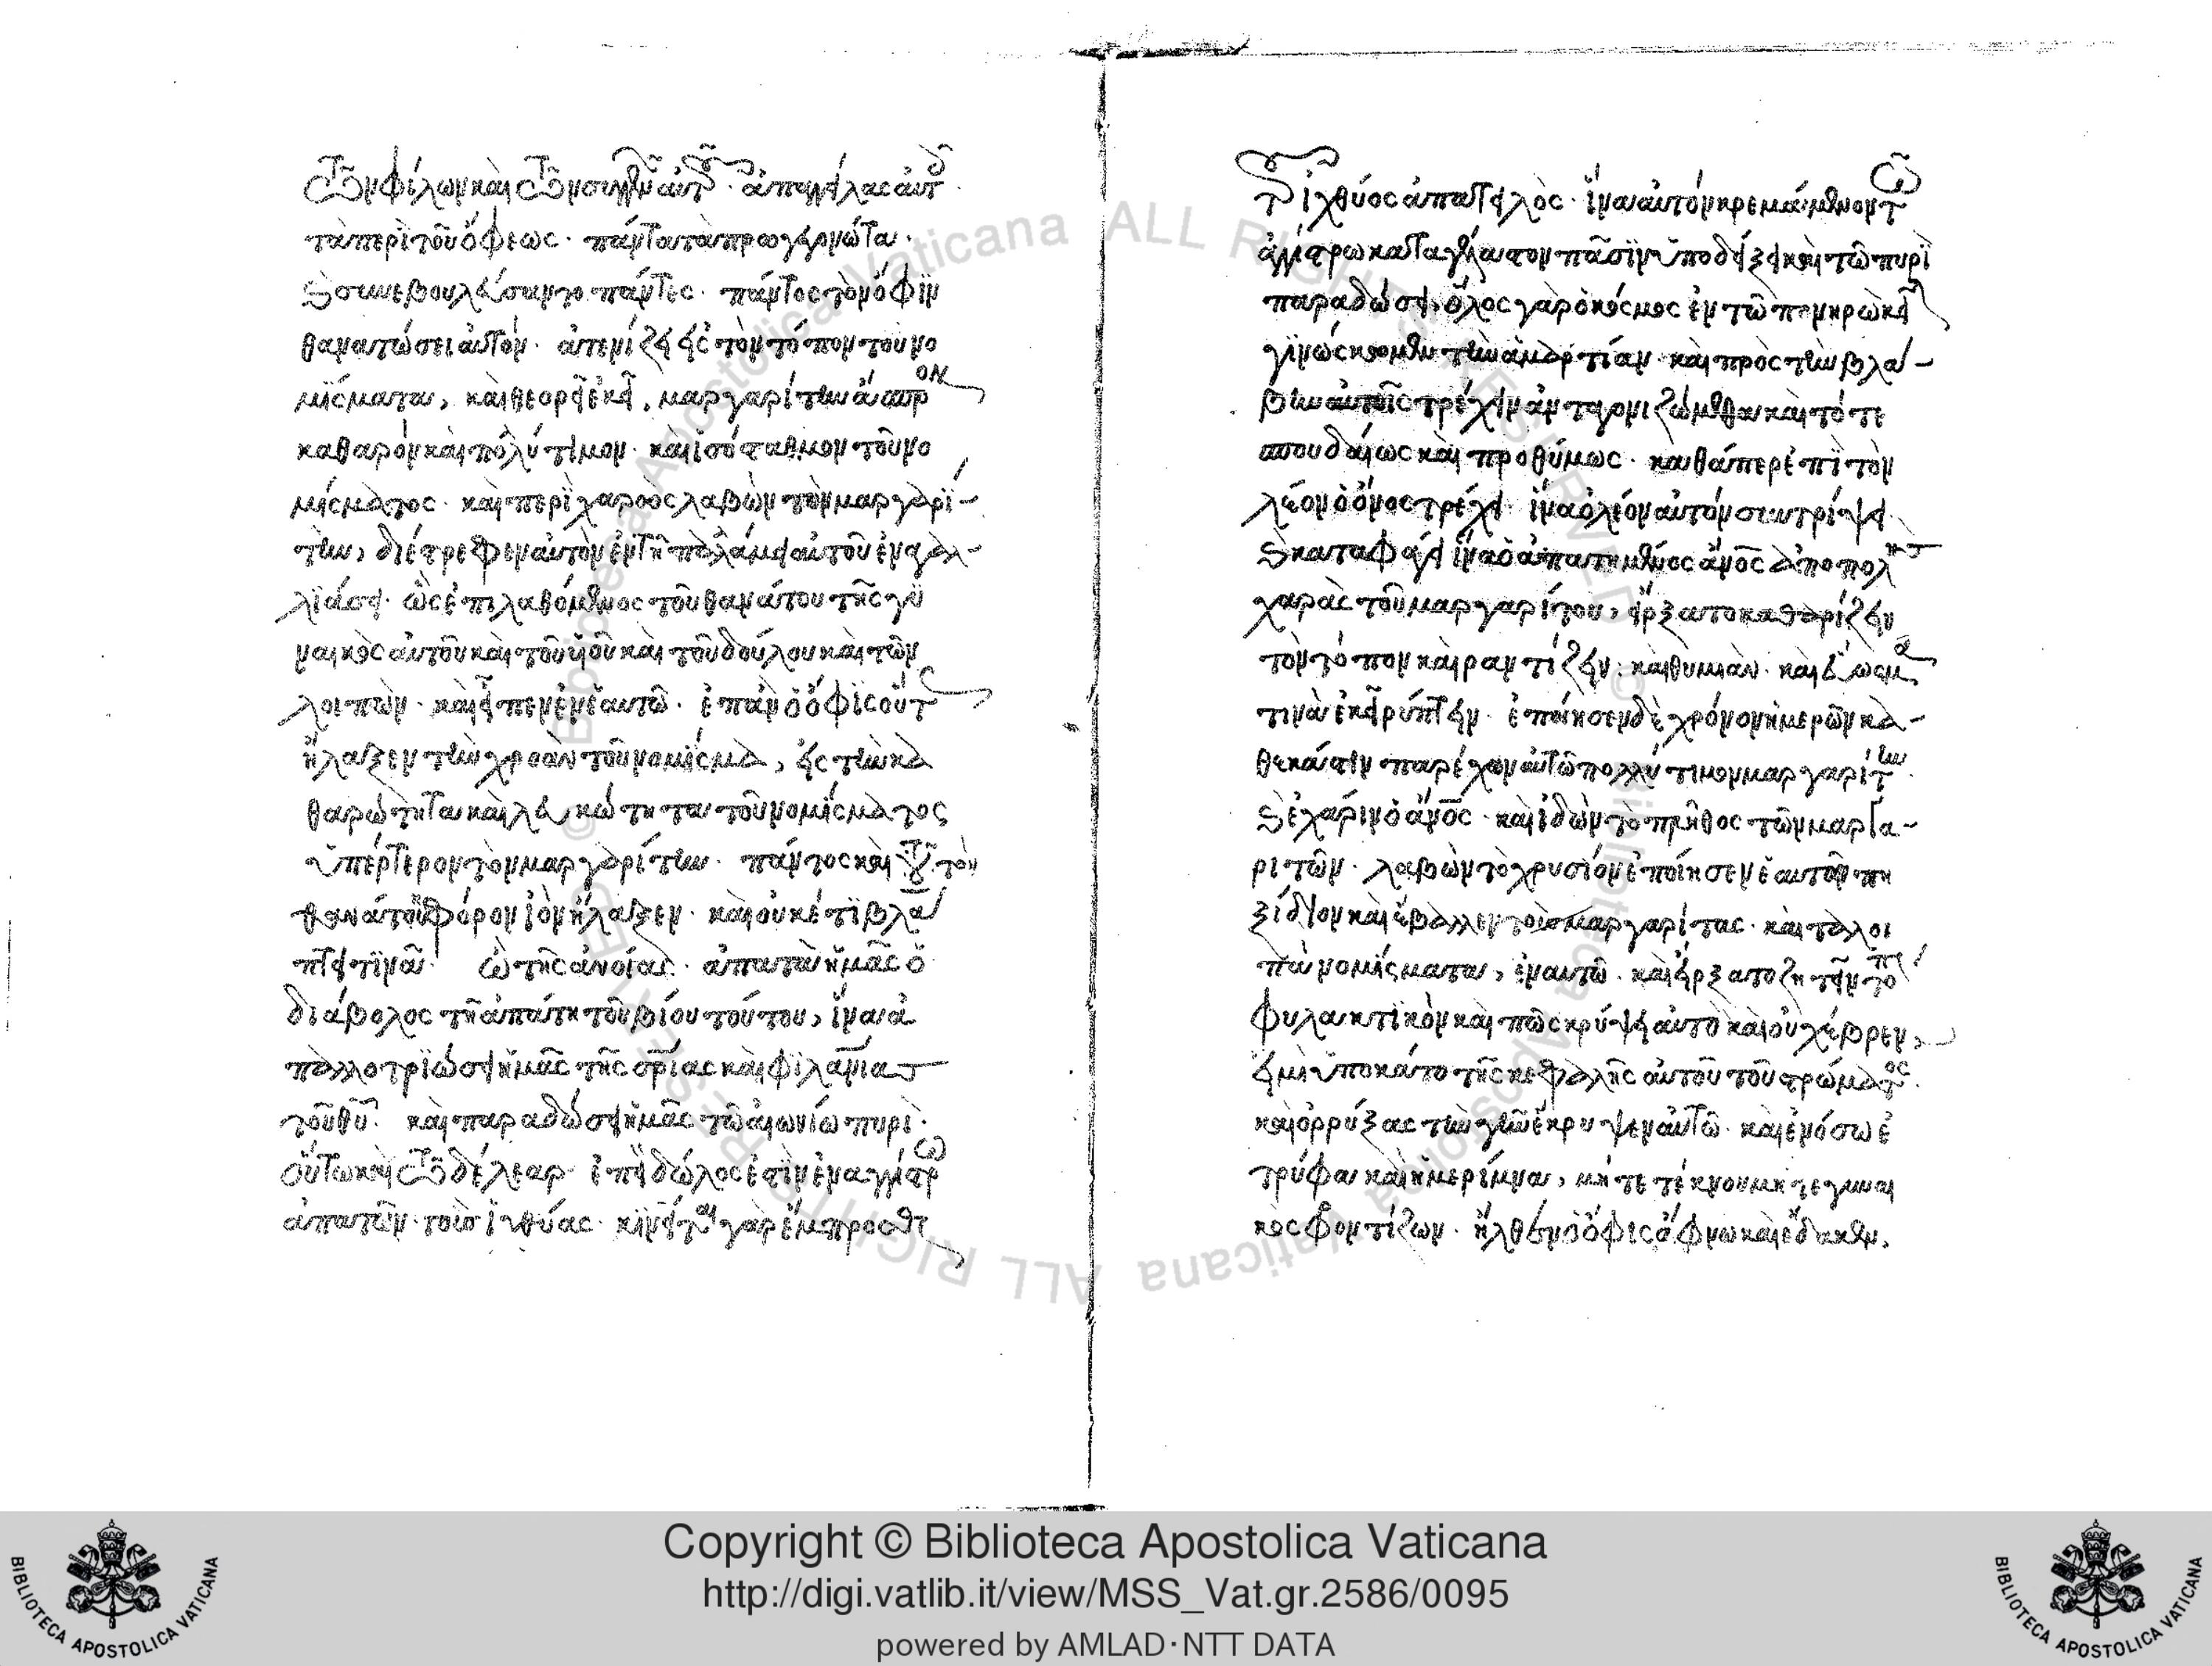 τῶν φίλων καὶ τῶν συγγενῶν αὐτοῦ · ἀπαγγείλας αὐτοῦ
τὰ περὶ τοῦ ὄφεως · πάντα τὰ προγεγονώτα ·
συνεβουλεύσαντο πάντες · πάντος τὸν ὄφϊν
θανατώσει αὐτόν · ἀτενίζει εἰς τὸν τόπον τοῦ νο
μίσματος, καὶ θεορεῖ ἐκεῖ, μαργαρίτην ἄσπρον
καθαρὸν καὶ πολύτιμον · καὶ ἰσόσταθμον τοῦ νο
μίσματος · καὶ περιχαροὸς λαβὼν τὸν μαργαρί-
την, διέστρεφεν αὐτὸν ἐν τῇ παλάμει αὐτοῦ ἐν ἀγαλ-
λϊάσει · ὡς ἐπιλαθόμενος τοῦ θανάτου τῆς γϋ
ναικὸς αὐτοῦ καὶ τοῦ υἱοῦ καὶ τοῦ δούλου καὶ τῶν
λοιπῶν · καὶ εἶπεν ἐν ἑαυτῶ · ἐπὰν ὁ ὄφϊς οὗτος
ἤλαξεν τὴν χροὰν τοῦ νομίσμα, εἰς τὴν κα
θαρώτητα καὶ λευκώτητα τοῦ νομίσματος
ὑπέρτερον τὸν μαργαρίτην · πάντος καὶ τὸν
θανάτου φόρον ἰὸν ἤλαξεν · καὶ οὐκέτϊ βλά
πτει τϊνᾶ · ὢ τῆς ἀνοίας · ἀπατᾶ ἡμᾶς ὁ
διάβολος τῆ ἀπάτη τοῦ βίου τούτου, ἵνα ἀ
παλλοτρϊώσει ἡμᾶς τῆς σρίας καὶ φϊλανίας
τοῦ θυ · καὶ παραδώσει ἡμᾶς τῶ αἰωνίω πυρὶ ·
οὕτω καὶ τὸ δέλεαρ ἐπεὶ δώλος ἐστὶν ἐν ἀγγίστρω
ἀπατῶν τοὺς ἰχθύας · κϊνεῖται γὰρ ἔμπροσθεν
τοῦ ἰχθύος ἀπατειλὸς · ἵνα αὐτὸν κρεμάμενον τῶ
ἀγγίστρω καταγέλαστον πᾶσϊν ὑποδείξει καὶ τῶ πυρὶ
παραδώσει, ὅλος γὰρ ὁ κόσμος ἐν τῶ πονηρῶ κεῖται
γϊνώσκομεν τὴν ἁμαρτίαν · καὶ πρὸς τὴν βλα-
βὴν αὐτοῖς τρέχειν ἀνταγονιζώμεθα καὶ τότε
σπουδαίως καὶ προθύμως · καθάπερ ἐπὶ τὸν
λέον ὁ ὄνος τρέχει ἵνα ὁ λέον αὐτὸν συντρίψει
καταφάγει ἵνα ὁ ἀπατημένος ἄνος ἀπο πολλῆς
χαρᾶς τοῦ μαργαρίτου, ἤρξατο καθαρίζειν
τὸν τόπον καὶ ραντίζειν · καὶ θυμιᾶν · καὶ εὐώσμα
τινὰ ἐκεῖ ρύπτειν · ἐποίησεν δὲ χρόνον ἡμερῶν κα-
θεκάστην παρέχων αὐτῶ πολλύτιμον μαργαρίτην ·
ἐχάριν ὁ ἄνος · καὶ ἰδὼν τὸ πλῆθος τῶν μαργα-
ριτῶν · λαβὼν τὸ χρυσίον ἐποίησεν ἑαυτῶ πη
ξίδιον καὶ ἔβαλλεν τοὺς μαργαρίτας · καὶ τὰ λοι
πὰ νομίσματα, ἐν αὐτῶ · καὶ ἤρξατο ζητεῖν τόπι
φυλακτικὸν καὶ πῶς κρύψει αὐτὸ καὶ οὐχ εὗρεν,
εἰ μὴ ὑποκάτο τῆς κεφαλῆς αὐτοῦ τοῦ στρώματος ·
καὶ ὀρρύξας τὴν γῆν ἔκρυψεν αὐτῶ · καὶ ἐν όσω ἐ
τρύφα καὶ ἡμερίμνα, μήτε τέκνου μήτε γυναι
κὸς φροντίζων · ἦλθεν ὁ ὄφις ἄφνω καὶ ἔδακεν,
Copyright © Biblioteca Apostolica Vaticana
http://digi.vatlib.it/view/MSS_Vat.gr.2586/0095
powered by AMLAD·NTT DATA
BIBLIOTECA APOSTOLICA VATICANA
BIBLIOTECA APOSTOLICA VATICANA